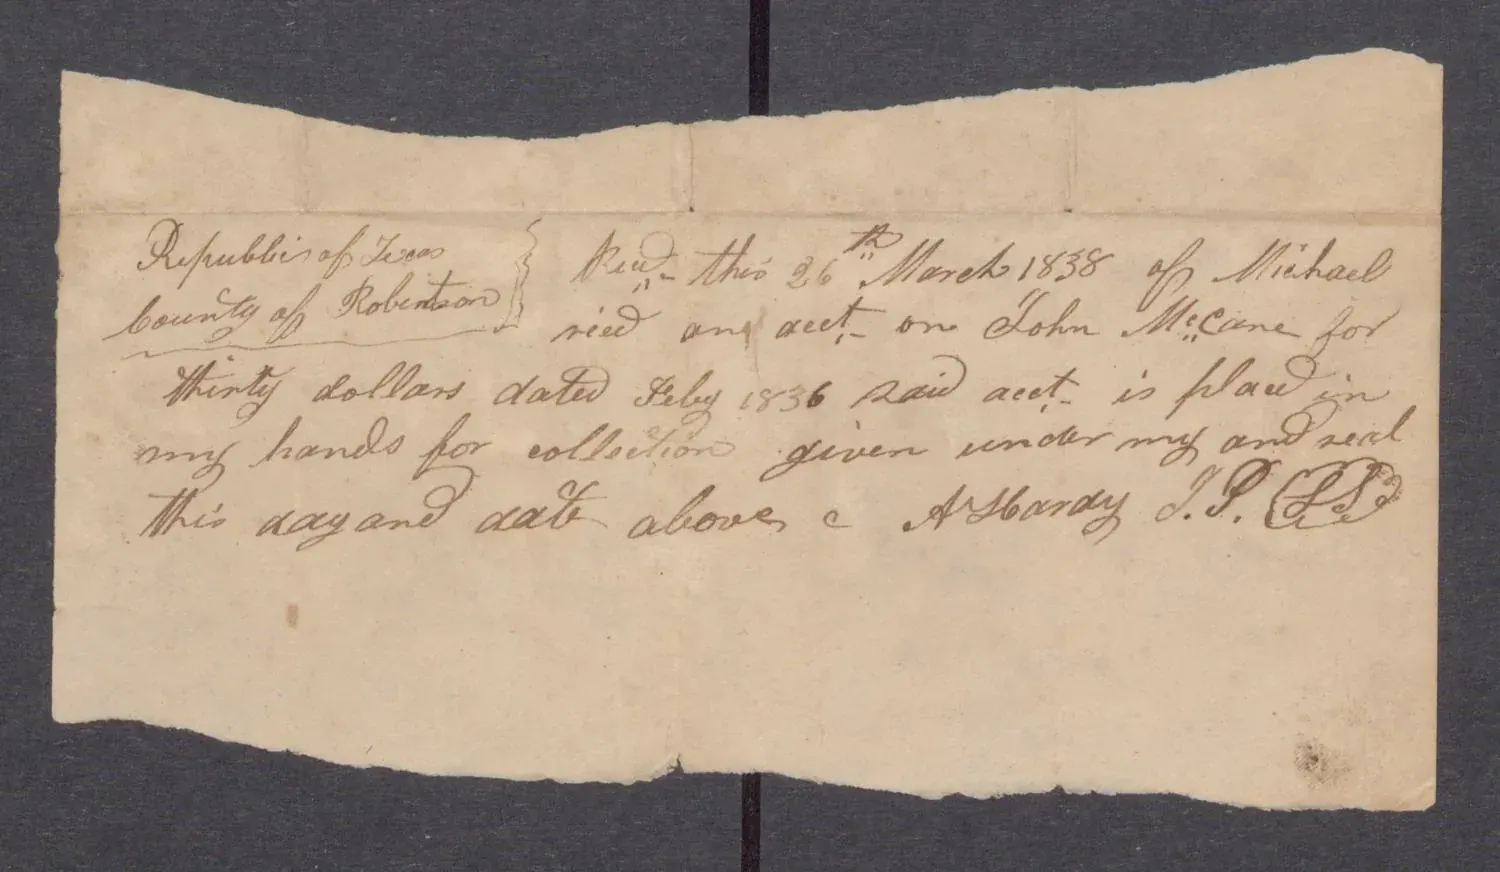 Republic of Texas
County of Robertson } Recd- this 26th March 1838 of Michael
ried an acct- on John McCane for
thirty dollars dated Feby 1836 said acct- is placd in
my hands for collection given under my and seal
this day and date above A Hardy J. P. (LS)